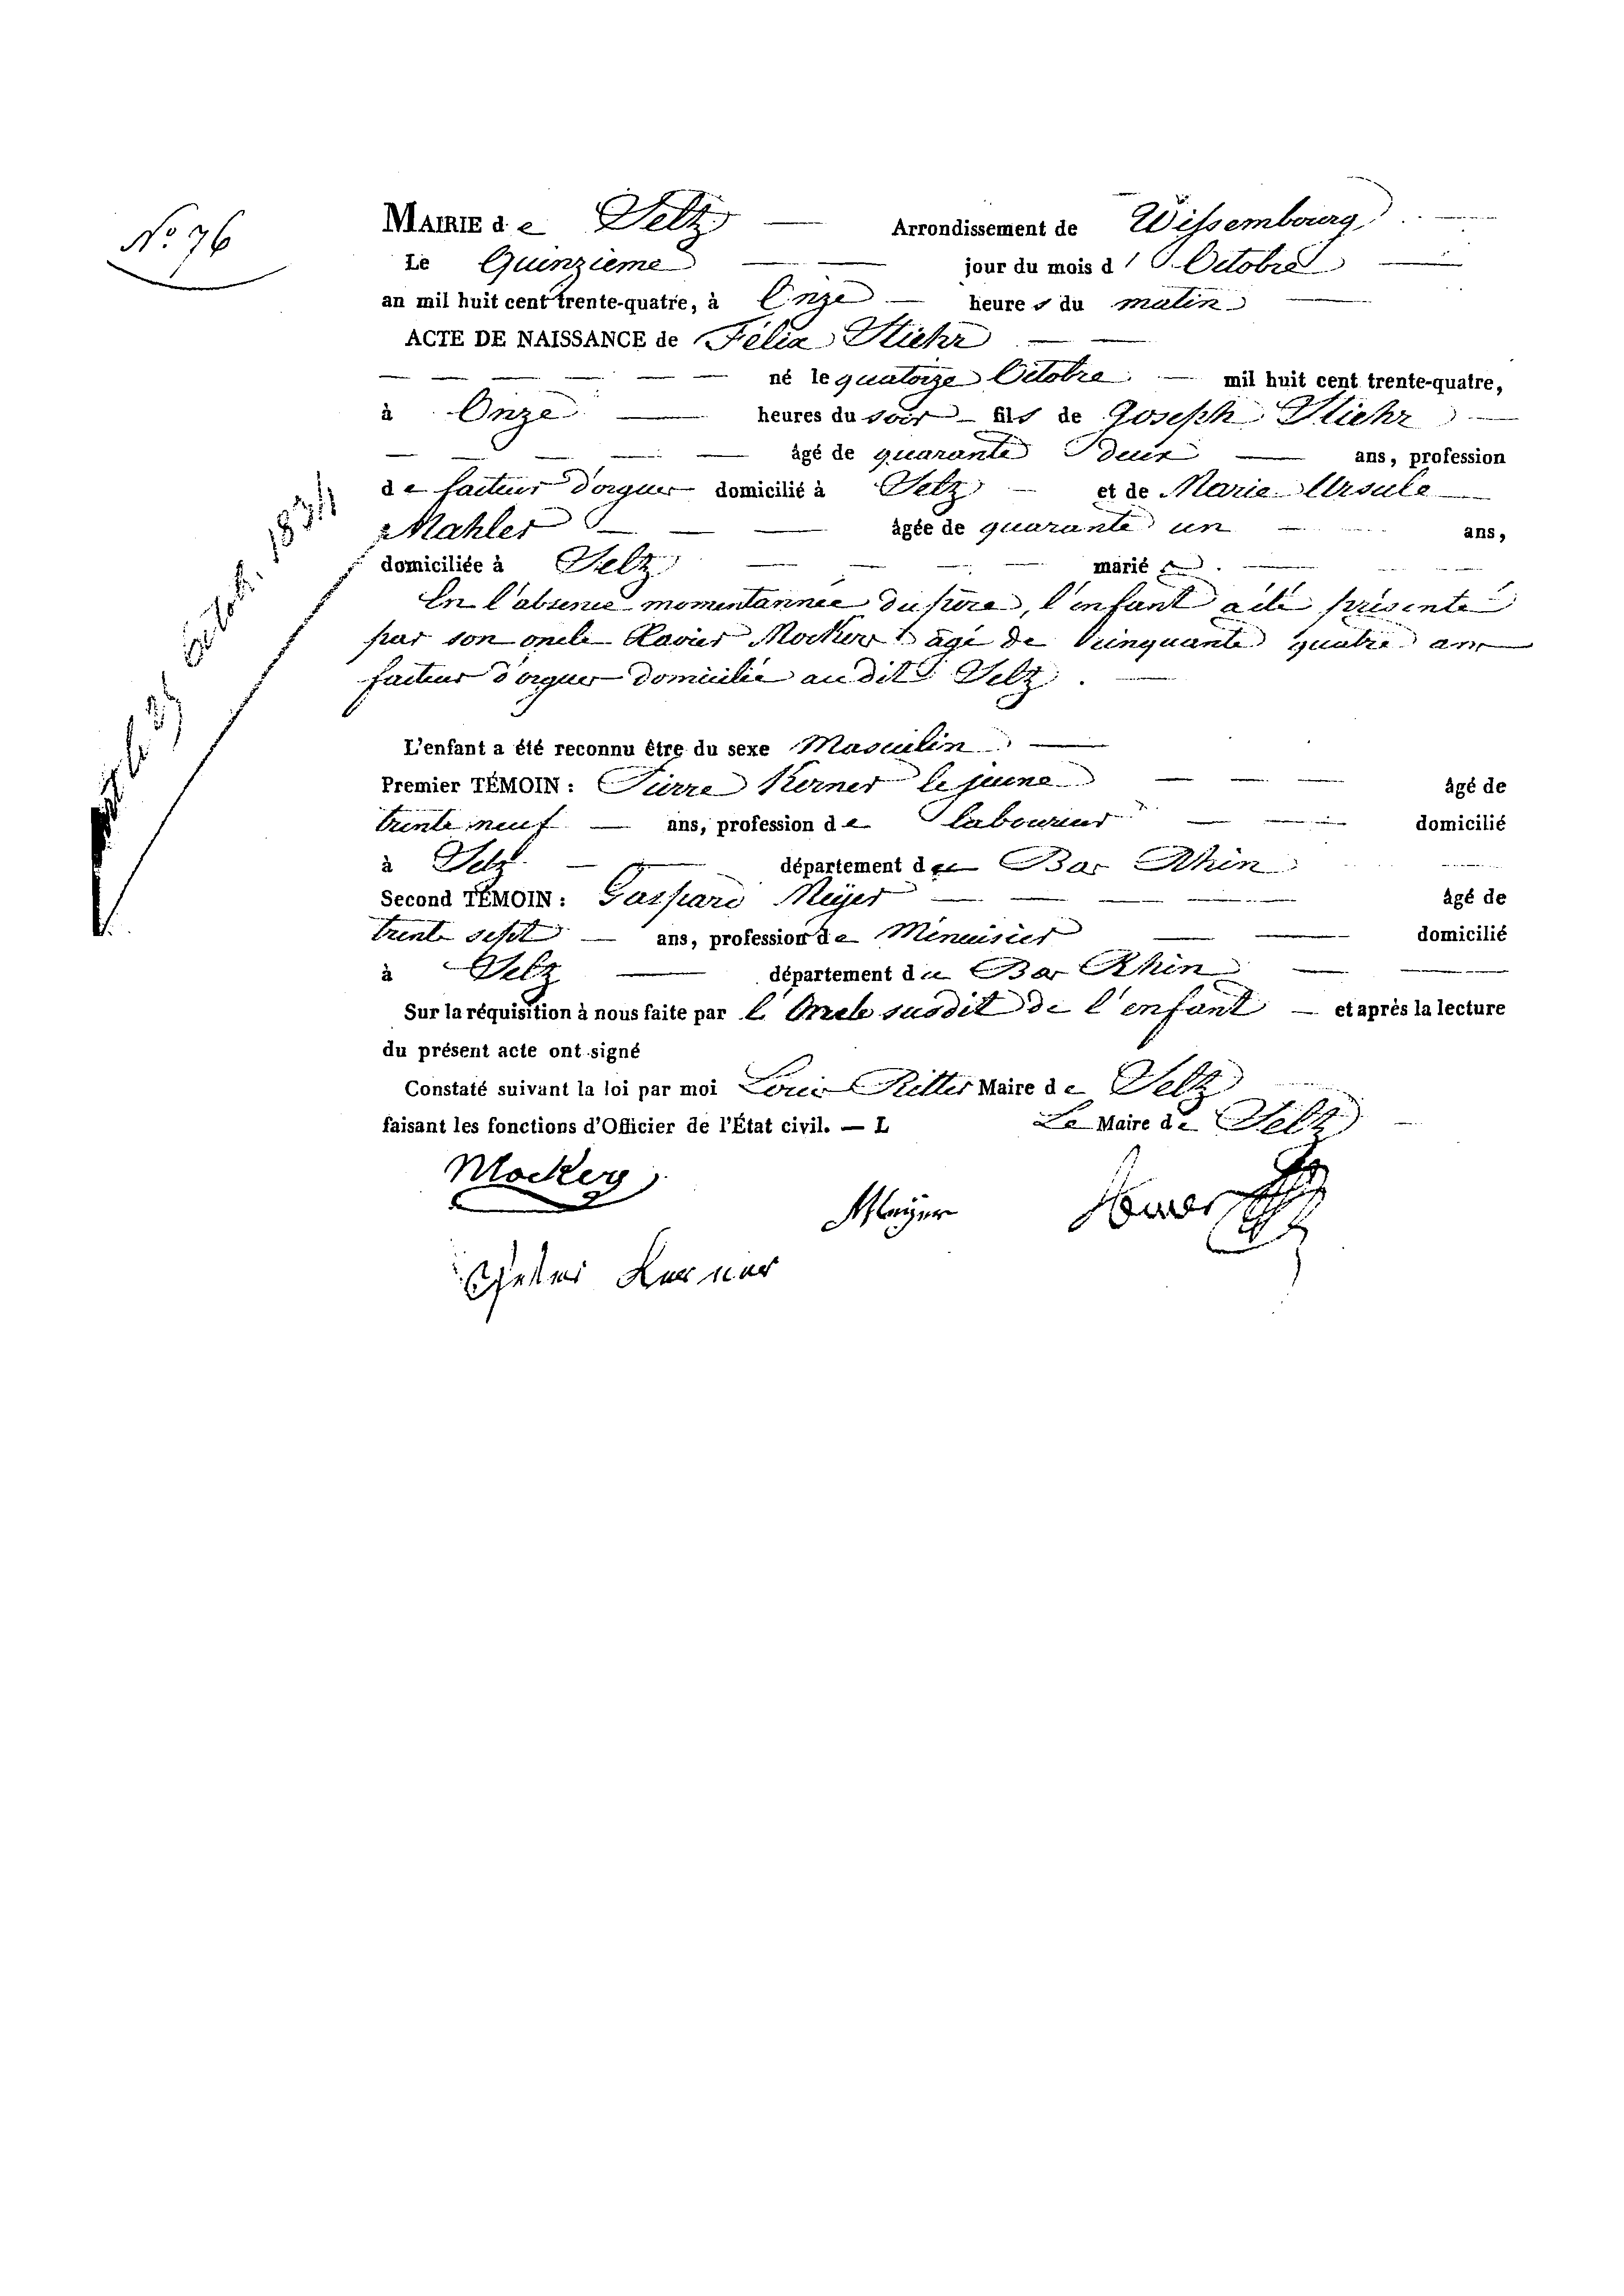 N.º 76
MAIRIE de Seltz Arrondissement de Wissembourg
Le Quinzième jour du mois d'Octobre
an mil huit cent trente-quatre, à Onze heures du matin
ACTE DE NAISSANCE de Félix Stiehr
né le quatorze Octobre mil huit cent trente-quatre,
à Onze heures du soir fils de Joseph Stiehr
âgé de quarante deux ans, profession
de facteur d'orgues domicilié à Seltz et de Marie Ursule
Mahler âgée de quarante un ans,
domiciliée à Seltz mariés
En l'absence momentannée du père, l'enfant a été présenté
par son oncle Xavier Mockers âgé de Cinquante quatre ans
facteur d'orgues domicilié au dit Seltz.
L'enfant a été reconnu être du sexe Masculin
Premier TÉMOIN : Pierre Kerner le jeune âgé de
trente neuf ans, profession de laboureur domicilié
à Seltz département du Bas Rhin
Second TÉMOIN : Gaspard Meÿer âgé de
trente sept ans, profession de Menuisier domicilié
à Seltz département du Bas Rhin
Sur la réquisition à nous faite par l'Oncle susdit de l'enfant et après la lecture
du présent acte ont signé
Constaté suivant la loi par moi Louis Ritter Maire de Seltz
faisant les fonctions d'Officier de l'État civil. — L
Le Maire de Seltz
Mockers
Meÿer
Peter Kerner
octob. 1834